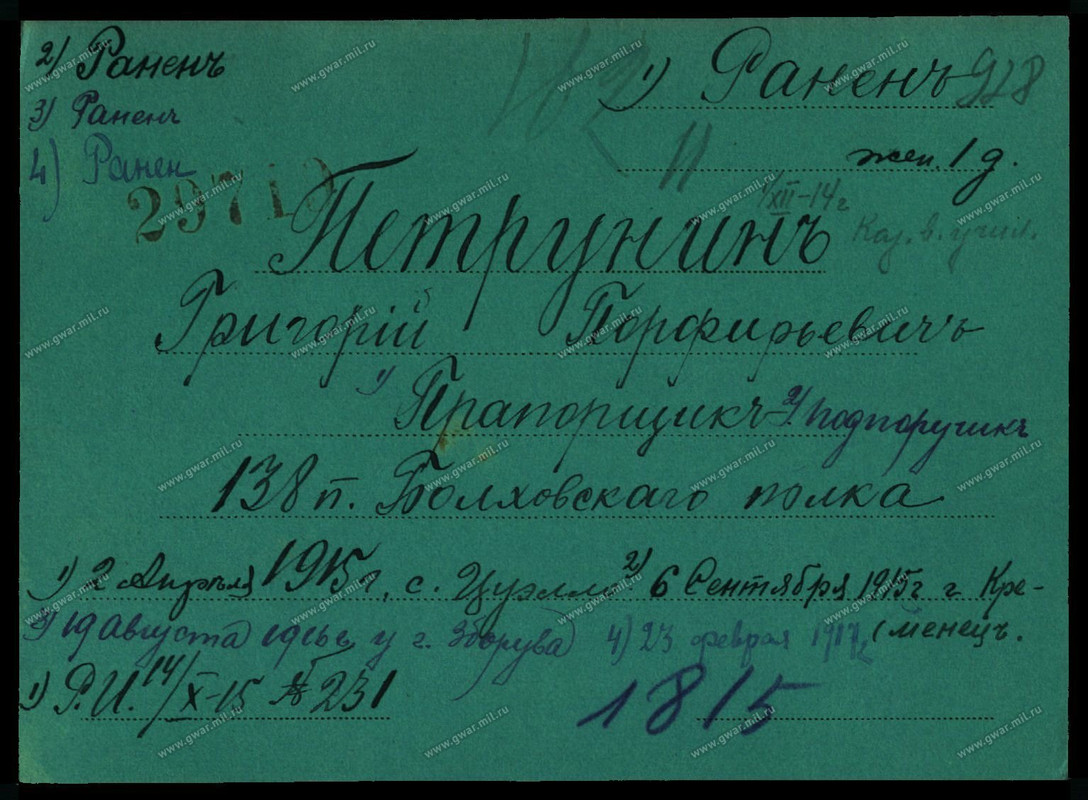 2) Раненъ
1) Раненъ 928
3) Раненъ
4) Ранен
11 жен. 1 д.
29710
1/XII-14 г
Каз. в. учил.
Петрунинъ
Григорій Порфирьевичъ
1) Прапорщикъ 2) Подпоручикъ
138 п. Болховскаго полка
1) 2 Апрѣля 1915 г. с. 2) 6 Сентября 1915 г г. Кре-
менецъ.
3) 19 августа 1916 г. у г. Зборува 4) 23 феврая 1917 г
1) Р.И. 14/X-15 № 231
1815
www.gwar.mil.ru